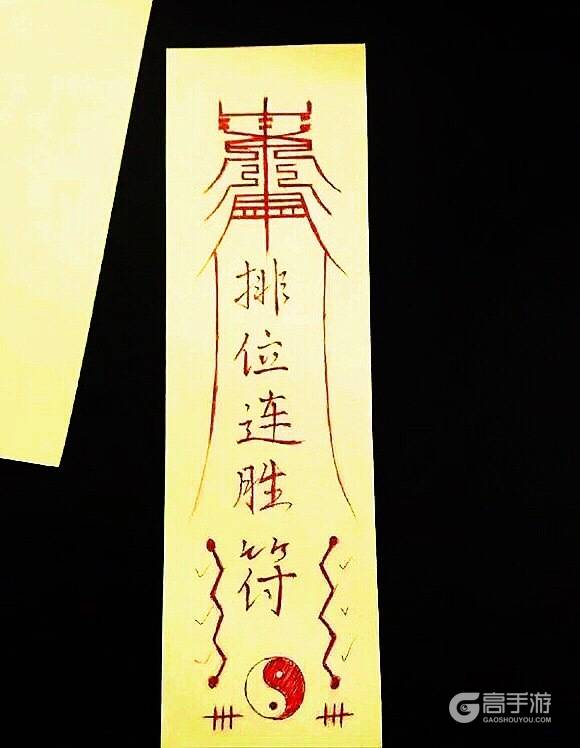 排
位
连
胜
符
高手游
GAOSHOUYOU.COM